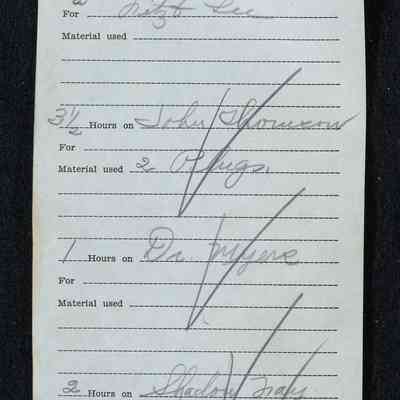 For Fitz & Lee
Material used
3½ Hours on John Thomson
For
Material used 2 Plugs.
1 Hours on Dr. Myers
For
Material used
2 Hours on Shadow